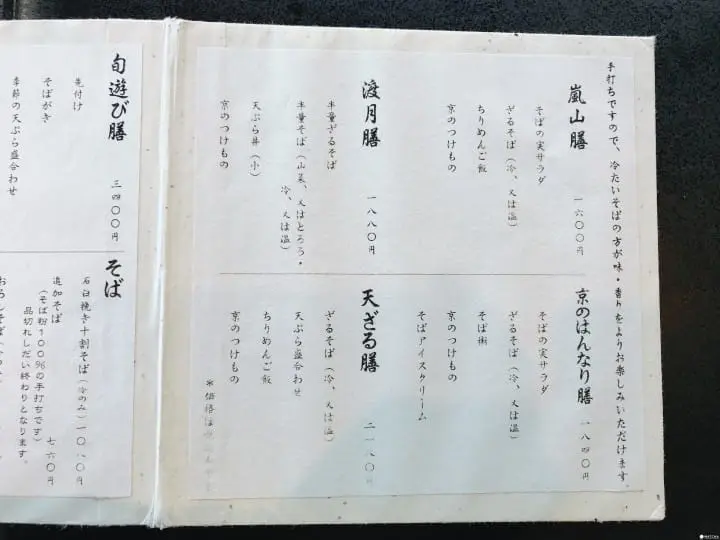 手打ちですので、冷たいそばの方が味・香りをよりお楽しみいただけます。
嵐山膳 一六〇〇円
そばの実サラダ
ざるそば（冷、又は温）
ちりめんご飯
京のつけもの
渡月膳 一八八〇円
半量ざるそば
半量そば（山菜、又はとろろ・
冷、又は温）
天ぷら丼（小）
京のつけもの
京のはんなり膳 一八四〇円
そばの実サラダ
ざるそば（冷、又は温）
そば
京のつけもの
そばアイスクリーム
天ざる膳 二一八〇円
ざるそば（冷、又は温）
天ぷら盛合わせ
ちりめんご飯
京のつけもの
※価格は
旬遊び膳 三四〇〇円
先付け
そばがき
季節の天ぷら盛合わせ
そば
石臼挽き十割そば（冷のみ）一〇八〇円
追加そば 七六〇円
（そば粉１００％の手打ちです）
品切れしだい終わりとなります。
おろしそば